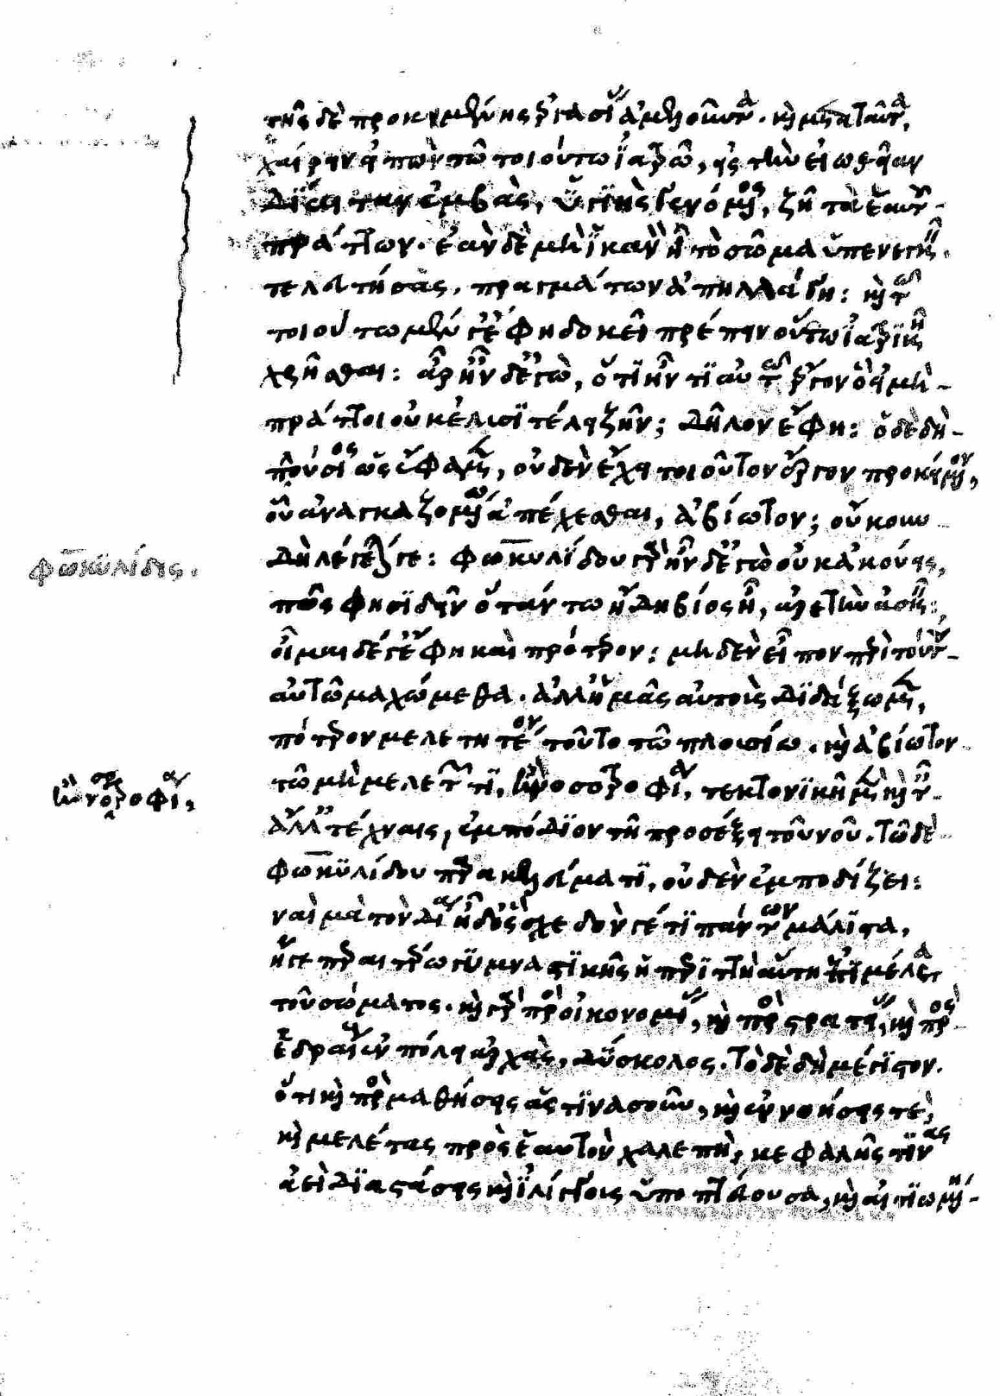 τῆς δὲ προκειμένης ἐργασίας ἀμελοῦντα. καὶ μετὰ ταῦτα,
χαίρειν εἰπὼν τῶ τοιούτω ἰατρῶ, εἰς τὴν εἰωθυῖαν
δίαιταν ἐμβὰς, ὑγιὴς γενόμενος, ζῆ τὰ ἑαυτοῦ
πράττων. ἐὰν δὲ μὴ ἱκανὸν ἦ τὸ σῶμα ὑπενεγκεῖν.
τελευτήσας, πραγμάτων ἀπηλλάγη: καὶ τῶ
τοιούτω μέν γε ἔφη δοκεῖ πρέπειν οὕτω ἰατρικῆ
χρῆσθαι: ἆρα ἦν δ' ἐγὼ, ὅτι ἦν τι αὐτῶ ἔργον ὃ εἰ μὴ
πράττοι οὐκ ἐλυσιτέλει ζῆν; δῆλον ἔφη: ὁ δὲ δὴ
πλούσιος ὥς φαμεν, οὐδὲν ἔχει τοιοῦτον ἔργον προκείμενον,
οὗ ἀναγκαζομένω ἀπέχεσθαι, ἀβίωτον; οὔκουν
δὴ λέγεταί γε: φωκυλίδου γὰρ ἦν δ' ἐγὼ οὐκ ἀκούεις,
φωκυλίδης.
πῶς φησὶ δεῖν ὅταν τω ἤδη βίος ἦ, ἀρετὴν ἀσκεῖν:
οἶμαι δέ γε ἔφη καὶ πρότερον: μηδὲν εἶπον περὶ τούτου
αὐτῶ μαχώμεθα. ἀλλ' ἡμᾶς αὐτοὺς διδάξωμεν,
πότερον μελετητέον τοῦτο τῶ πλουσίω. καὶ ἀβίωτον
τῶ μὴ μελετῶντι, ἢ νοσοτροφία, τεκτονικῆ μὲν καὶ ταῖς
ἢ νοσοτροφία,
ἄλλαις τέχναις, ἐμπόδιον τῆ προσέξει τοῦ νοῦ. τὸ δὲ
φωκυλίδου παρακέλευμά τι, οὐδὲν ἐμποδίζει:
ναὶ μὰ τὸν δία ἦ δ' ὃς σχεδόν γέ τι πάντων μάλιστα,
ἥ γε περαιτέρω γυμναστικῆς ἡ περιττὴ αὕτη ἐπιμέλεια
τοῦ σώματος. καὶ γὰρ πρὸς οἰκονομίας, καὶ πρὸς στρατείας, καὶ πρὸς
ἑδραίους ἐν πόλει ἀρχὰς, δύσκολος. τὸ δὲ δὴ μέγιστον.
ὅτι καὶ πρὸς μαθήσεις ἅς τινας οὖν, καὶ ἐννοήσεις τὲ,
καὶ μελέτας πρὸς ἑαυτὸν χαλεπὴ, κεφαλῆς τινὰς
ἀεὶ διαστάσεις καὶ ἰλίγγους ὑποπτεύουσα, καὶ αἰτιωμένη